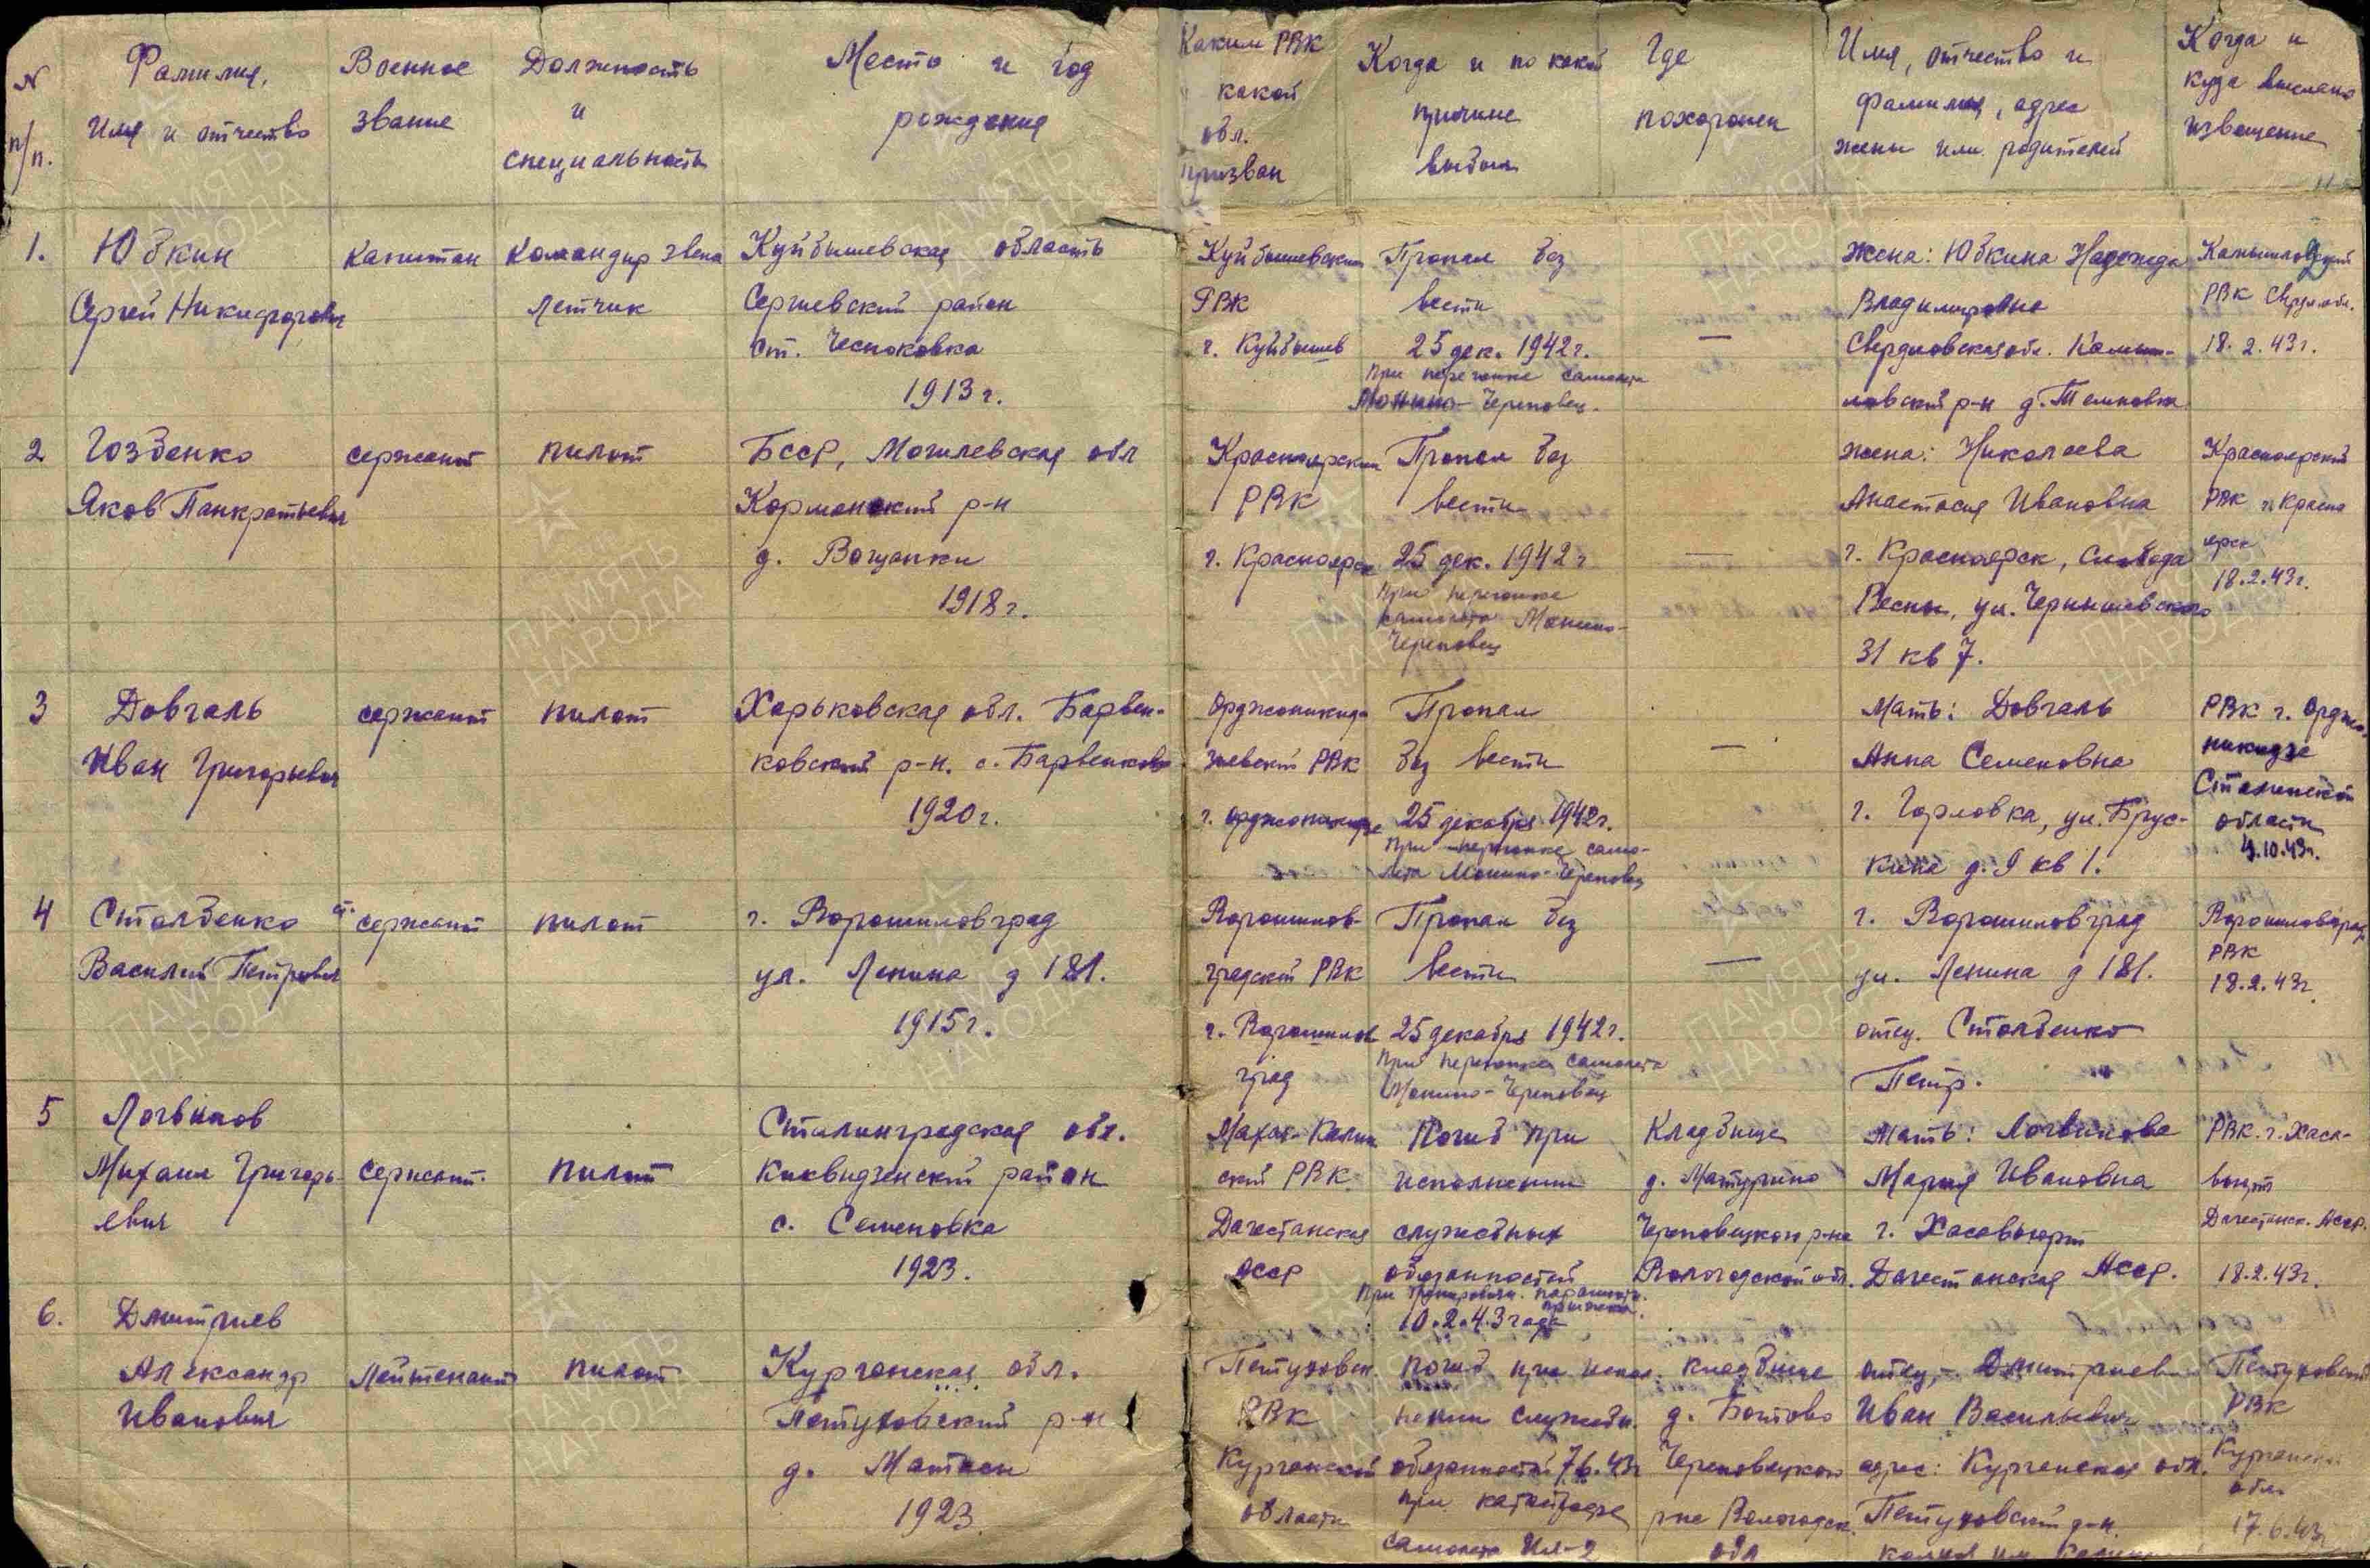 N
п/п.
Фамилия,
Имя и отчество
Военное
звание
Должность
и
специальность
Место и год
рождения
Каким РВК
какой
обл.
призван
Когда и по какой
причине
выбыл
Где
похоронен
Имя, отчество и
фамилия, адрес
жены или родителей
Когда и
куда выслано
извещение
1.
Юбкин
Сергей Никифорович
капитан
командир звена
летчик
Куйбышевская область
Сергиевский район
ст. Чесноковка
1913 г.
Куйбышевским
РВК
г. Куйбышев
Пропал без
вести
25 дек. 1942 г.
при перегонке самолета
Монино-Череповец.
—
жена: Юбкина Надежда
Владимировна
Свердловская обл. Камыш-
ловский р-н д.
Камышловский
РВК Сверд. обл.
18.2.43г.
2
Гозбенко
Яков Панкратьевич
сержант
пилот
БССР, Могилевская обл
Кормянский р-н
д. Вощанки
1918 г.
Красноярским
РВК
г. Красноярск
Пропал без
вести
25 дек. 1942 г
при перегонке
самолета Монино-
Череповец
—
жена: Николаева
Анастасия Ивановна
г. Красноярск, Слобода
Весны, ул. Чернышевского
31 кв 7.
Красноярский
РВК г. Красно
ярск
18.2.43г.
3
Довгаль
Иван Григорьевич
сержант
пилот
Харьковская обл. Барвен-
ковский р-н. с. Барвенково
1920 г.
Орджоникид-
зевский РВК
г. Орджоникидзе
Пропал
без вести
25 декабря 1942г.
при перегонке само-
лета Монино-Череповец
—
Мать: Довгаль
Анна Семеновна
г. Горловка, ул. Брус-
кина д. 9 кв 1.
РВК г. Орджо-
никидзе
Сталинской
области
4.10.43г.
4
Столбенко
Василий Петрович
ст. сержант
пилот
г. Ворошиловград
ул. Ленина д 181.
1915 г.
Ворошилов-
градский РВК
г. Ворошилов
град
Пропал без
вести
25 декабря 1942 г.
при перегонке самолета
Монино-Череповец
—
г. Ворошиловград
ул. Ленина д 181.
отец. Столбенко
Петр.
Ворошиловград.
РВК
18.2.43г
5
Логвинов
Михаил Григорь-
евич
сержант.
пилот
Сталинградская обл.
Киквидзенский район
с. Семеновка
1923.
ский РВК
Дагестанская
АССР
Погиб при
исполнении
служебных
обязанностей
при тренировочн. парашютн.
прыжках.
10.2.43 года
Кладбище
д. Матурино
Череповецкого р-на
Вологодской обл.
Мать: Логвинова
Мария Ивановна
г. Хасавьюрт
Дагестанская АССР.
РВК. г. Хаса-
вьюрт
Дагестанск. АССР.
18.2.43г.
6.
Дмитриев
Александр
Иванович
Лейтенант
пилот
Курганская обл.
Петуховский р-н
д. Матасы
1923
Петуховск.
РВК
Курганской
области
погиб при испол-
нении служебн.
обязанностей 7.6.43г
при катастрофе
самолета Ил-2
кладбище
д. Ботово
Череповецкого
р-на Вологодск.
обл
отец,- Дмитриев
Иван Васильевич
адрес: Курганская обл.
Петуховский р-н.
Петуховский
РВК
Курганской
обл.
17.6.43г
ПАМЯТЬ
НАРОДА